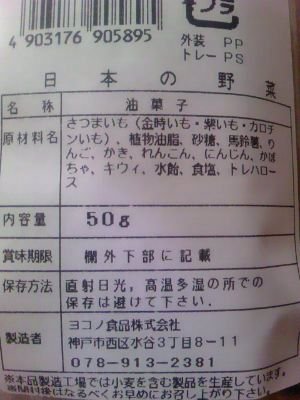 プラ
4 903176 905895
外装 PP
トレー PS
日本の野菜
名称 油菓子
原材料名 さつまいも（金時いも・紫いも・カロチ
ンいも）、植物油脂、砂糖、馬鈴薯、り
んご、かき、れんこん、にんじん、かぼ
ちゃ、キウィ、水飴、食塩、トレハロー
ス
内容量 50g
賞味期限 欄外下部に記載
保存方法 直射日光，高温多湿の所での
保存は避けて下さい.
製造者 ヨコノ食品株式会社
神戸市西区水谷3丁目8－11
078-913-2381
※本品製造工場では小麦を含む製品を生産しています。
※開封後はなるべくお早めにお召し上がり下さい。